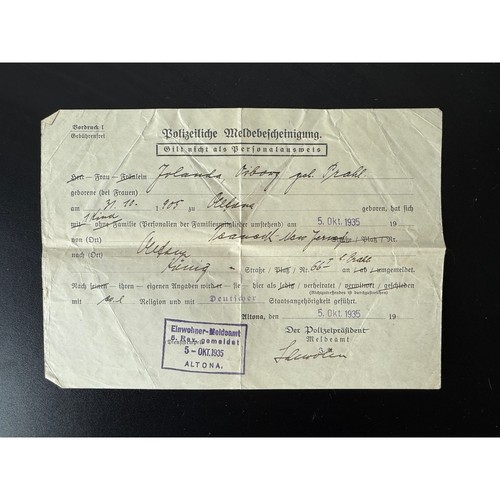 Vordruck 1
Gebührenfrei
Polizeiliche Meldebescheinigung.
Gilt nicht als Personalausweis
Herr – Frau – Fräulein Jolanda geb. Prahl
geborene (bei Frauen)
am 10. 905 zu Altona geboren, hat sich
mit – ohne Familie (Personalien der Familienmitglieder umstehend) am 5. Okt. 1935 19
von (Ort) New Jersey Straße / Platz / Nr.
nach (Ort) Altona König " Straße / Platz / Nr. 66 I b/ Prahl an / ab / umgemeldet.
Nach seinen – ihren – eigenen Angaben wird er – sie hier als ledig / verheiratet / verwitwet / geschieden
mit Religion und mit Deutscher Staatsangehörigkeit geführt.
Altona, den 5. Okt. 1935 19
Der Polizeipräsident
Meldeamt
Einwohner-Meldeamt
6. Rev. gemeldet
5 - OKT. 1935
ALTONA.